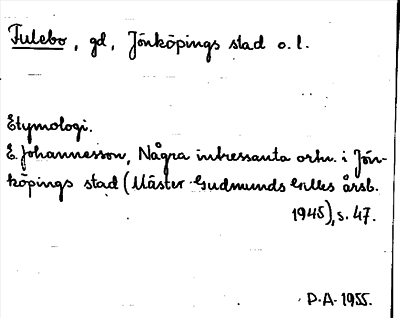 Fulebo, gd, Jönköpings stad o. l.
Etymologi.
E. Johannesson, Några intressanta ortn. i Jön-
köpings stad (Mäster Gudmunds Gilles årsb.
1945), s. 47.
P.A. 1955.